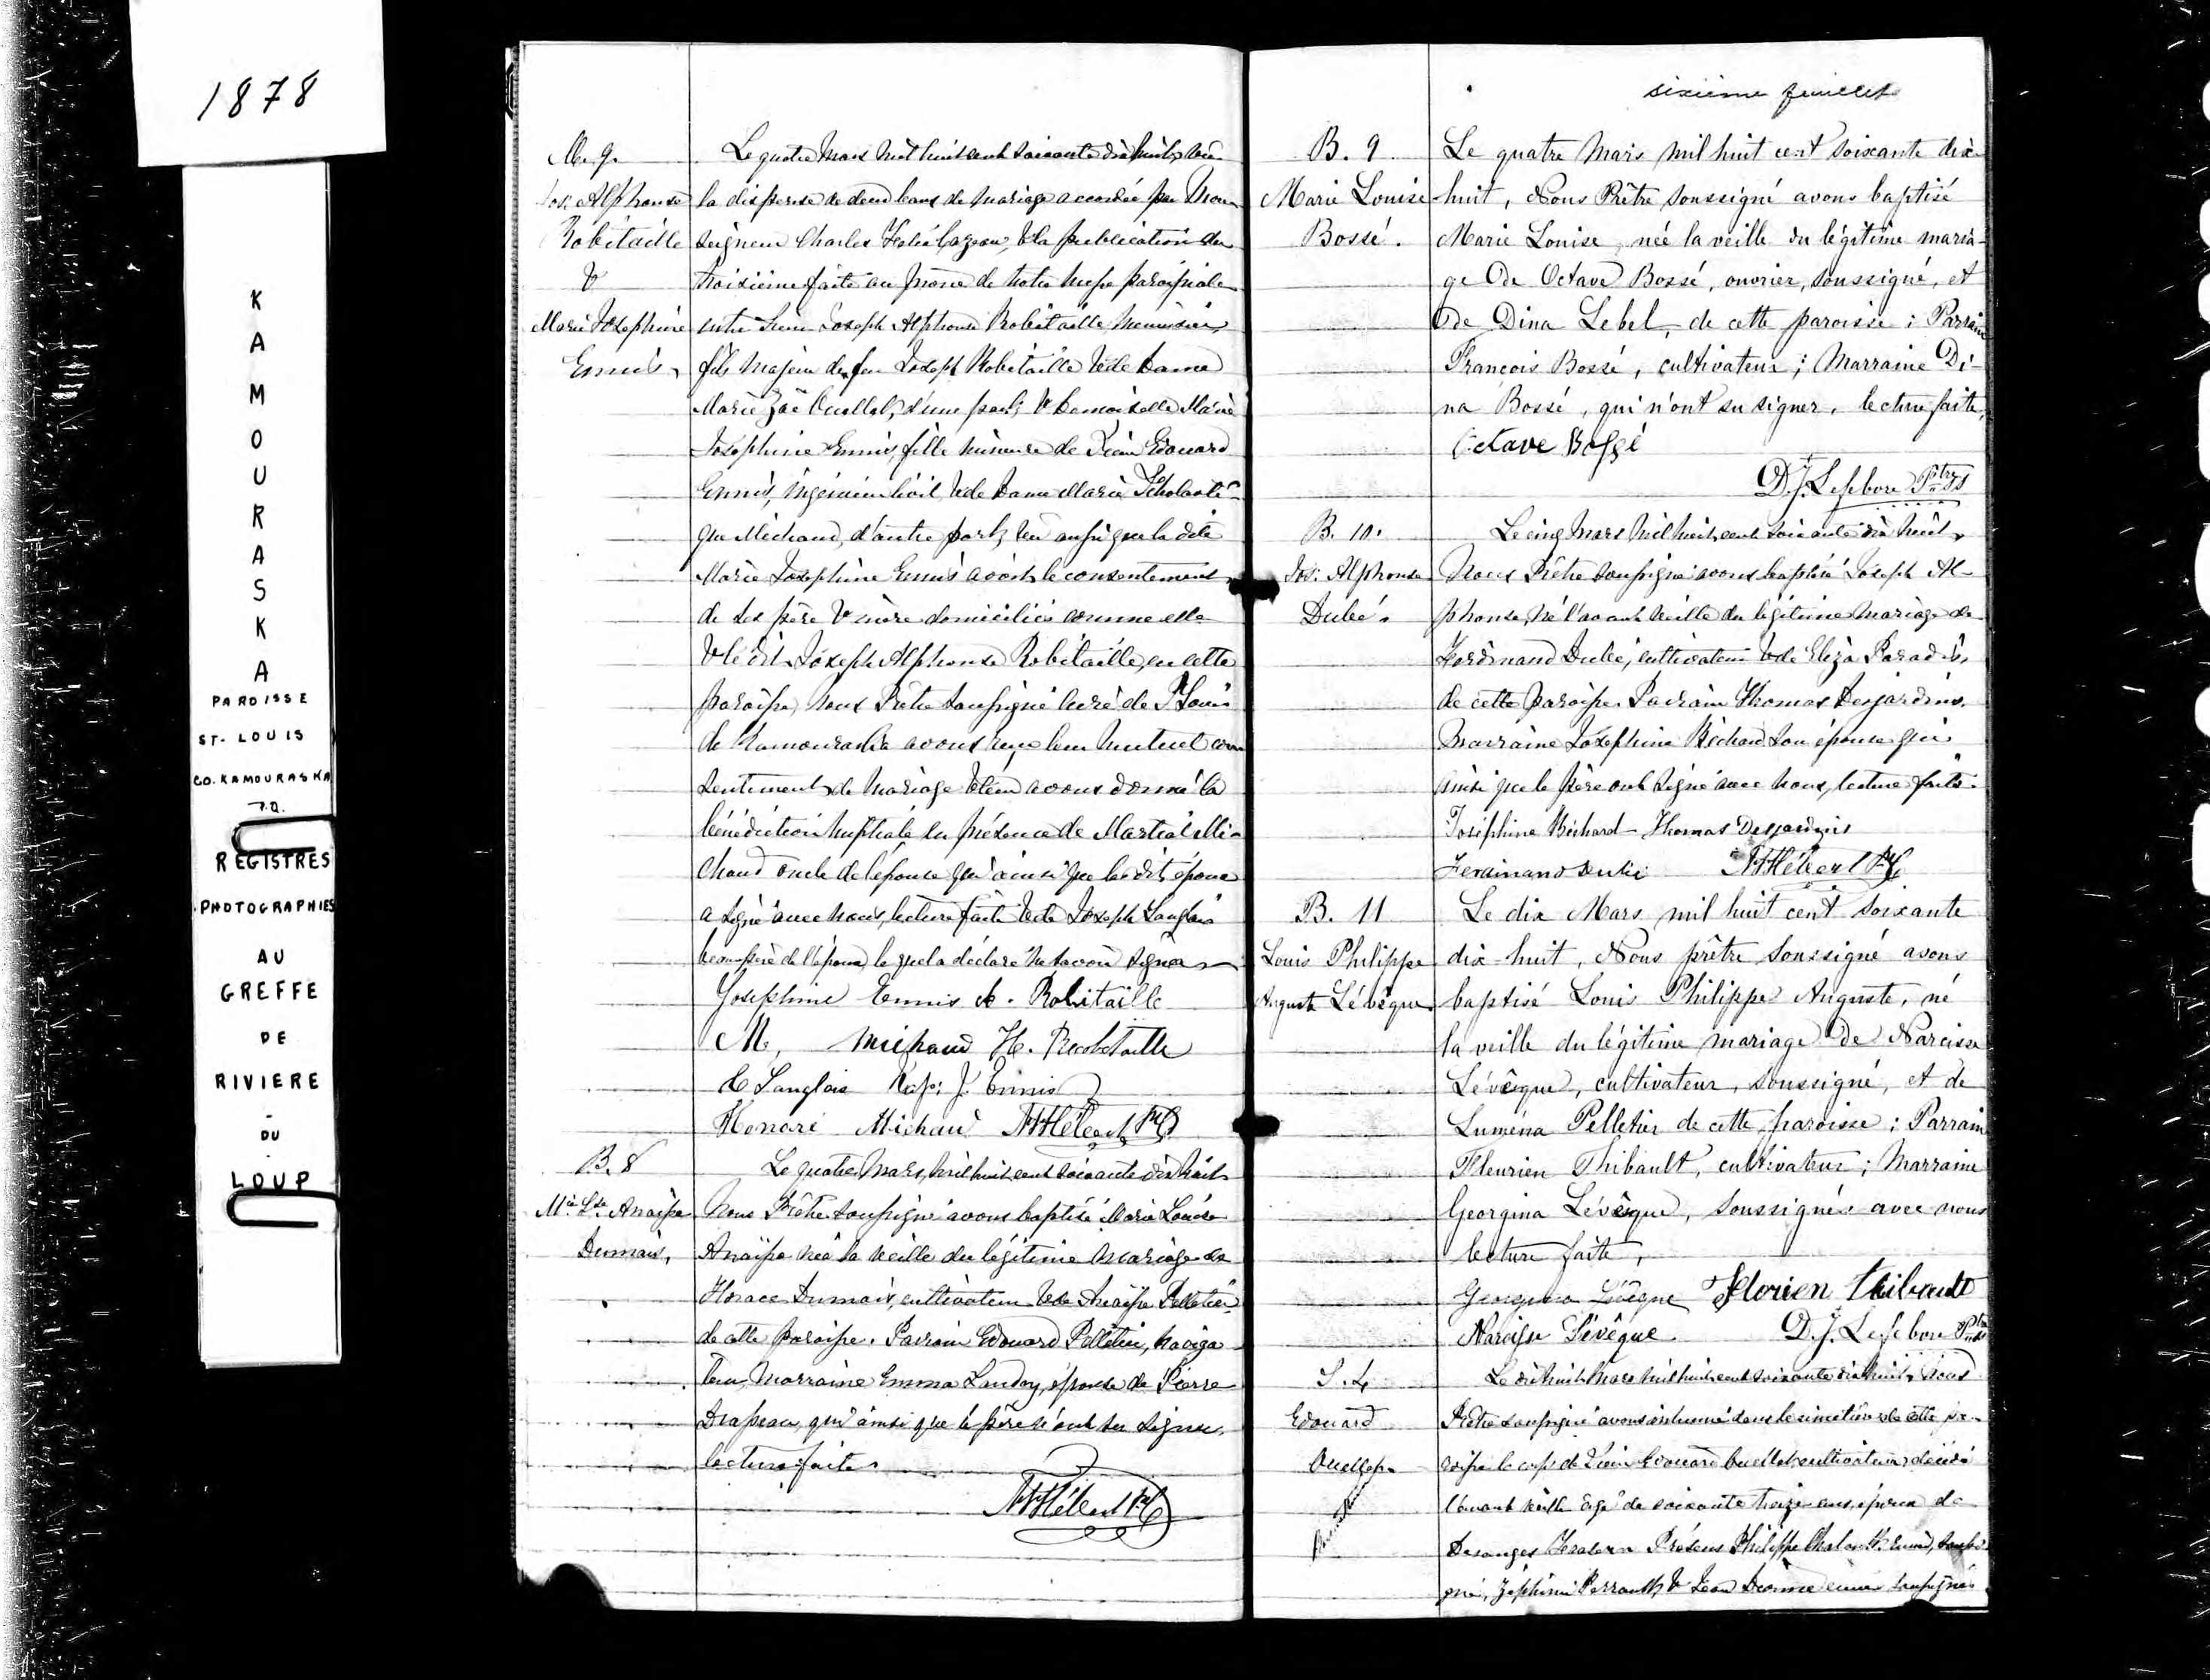 1878
K
A
M
O
U
R
A
S
K
A
PAROISSE
ST- LOUIS
CO. KAMOURASKA
P.Q.
REGISTRES
PHOTOGRAPHIES
AU
GREFFE
DE
RIVIERE
-
DU
-
LOUP
Le quatre Mars mil huit cent soixante dix huit, vu
M. 7.
la dispense de deux bans de mariage accordée par Mon
Jos. Alphonse
Robitaille
seigneur Charles Felix Cazeau, & la publication du
&
troisième faite au prône de notre messe paroissiale
Marie Josephine
entre Sieur Joseph Alphonse Robitaille menuisier,
Ennis,
fils majeur de feu Joseph Robitaille & de Dame
Marie Zoé Ouellet, d'une part; & Demoiselle Marie
Josephine Ennis, fille mineure de Sieur Edouard
Ennis, Ingénieur Civil & de Dame Marie Scholasti-
que Michaud, d'autre part; vu aussi que la dite
Marie Josephine Ennis avait le consentement
de ses père & mère domiciliés comme elle
& le dit Joseph Alphonse Robitaille, en cette
paroisse, Nous Prêtre soussigné Curé de St Louis
de Kamouraska avons reçu leur mutuel con
sentement de mariage & leur avons donné la
bénédiction nuptiale en présence de Martial Mi-
chaud oncle de l'épouse qui ainsi que les dits époux
a signé avec nous, lecture faite & de Joseph Langlais
beaupère de l'époux lequel a déclaré ne savoir signer
Josephine Ennis A. Robitaille
M. Michaud H. Robitaille
C Langlais J. Ennis
Honoré Michaud Hébert Ptre
B. 8
Le quatre Mars, mil huit cent soixante dix huit
Mie Lse Anaïsse
Nous Prêtre soussigné avons baptisé Marie Louise
Dumais,
Anaïsse née la veille du légitime mariage de
Horace Dumais, cultivateur & de Anaïsse Pelletier
de cette paroisse. Parrain Edouard Pelletier, naviga
teur, Marraine Emma Landry, épouse de Pierre
Drapeau, qui ainsi que le père n'ont su signer,
lecture faite.
Hébert Ptre
sixième feuillet
B. 9
Le quatre Mars mil huit cent soixante dix-
Marie Louise
huit, Nous Prêtre soussigné avons baptisé
Bossé.
Marie Louise, née la veille du légitime maria-
ge de Octave Bossé, ouvrier, soussigné, et
de Dina Lebel, de cette paroisse; Parrain
François Bossé, cultivateur; Marraine Di-
na Bossé, qui n'ont su signer, lecture faite,
Octave Bossé
D.J. Lefebvre Ptre
B. 10.
Le cinq Mars mil huit cent soixante dix huit,
Jos. Alphonse
Nous Prêtre soussigné avons baptisé Joseph Al-
Dubé.
phonse, né l'avant veille du légitime mariage de
Ferdinand Dubé, cultivateur & de Eliza Paradis,
de cette paroisse. Parrain Thomas Desjardins,
Marraine Joséphine Béchard son épouse qui
ainsi que le père ont signé avec nous, lecture faite.
Joséphine Béchard Thomas Desjardins
Ferdinand Dubé Hébert Ptre
B. 11
Le dix Mars mil huit cent soixante
Louis Philippe
dix-huit, Nous prêtre soussigné avons
Auguste Lévêque
baptisé Louis Philippe Auguste, né
la veille du légitime mariage de Narcisse
Lévêque, cultivateur, soussigné, et de
Luména Pelletier de cette paroisse; Parrain
Fleurien Thibault, cultivateur; Marraine
Georgina Lévêque, soussignés avec nous
lecture faite,
Georgina Lévêque Florien Thibault
Narcisse Lévêque D.J. Lefebvre Ptre
S. 4
Le dix huit Mars mil huit cent soixante dix huit, Nous
Edouard
Prêtre soussigné avons inhumé dans le cimetière de cette pa-
Ouellet.
roisse le corps de Sieur Edouard Ouellet cultivateur, décédé
l'avant veille âgé de soixante treize ans, époux de
Desanges Présens Philippe
Perrault, & Jean Dionne soussignés